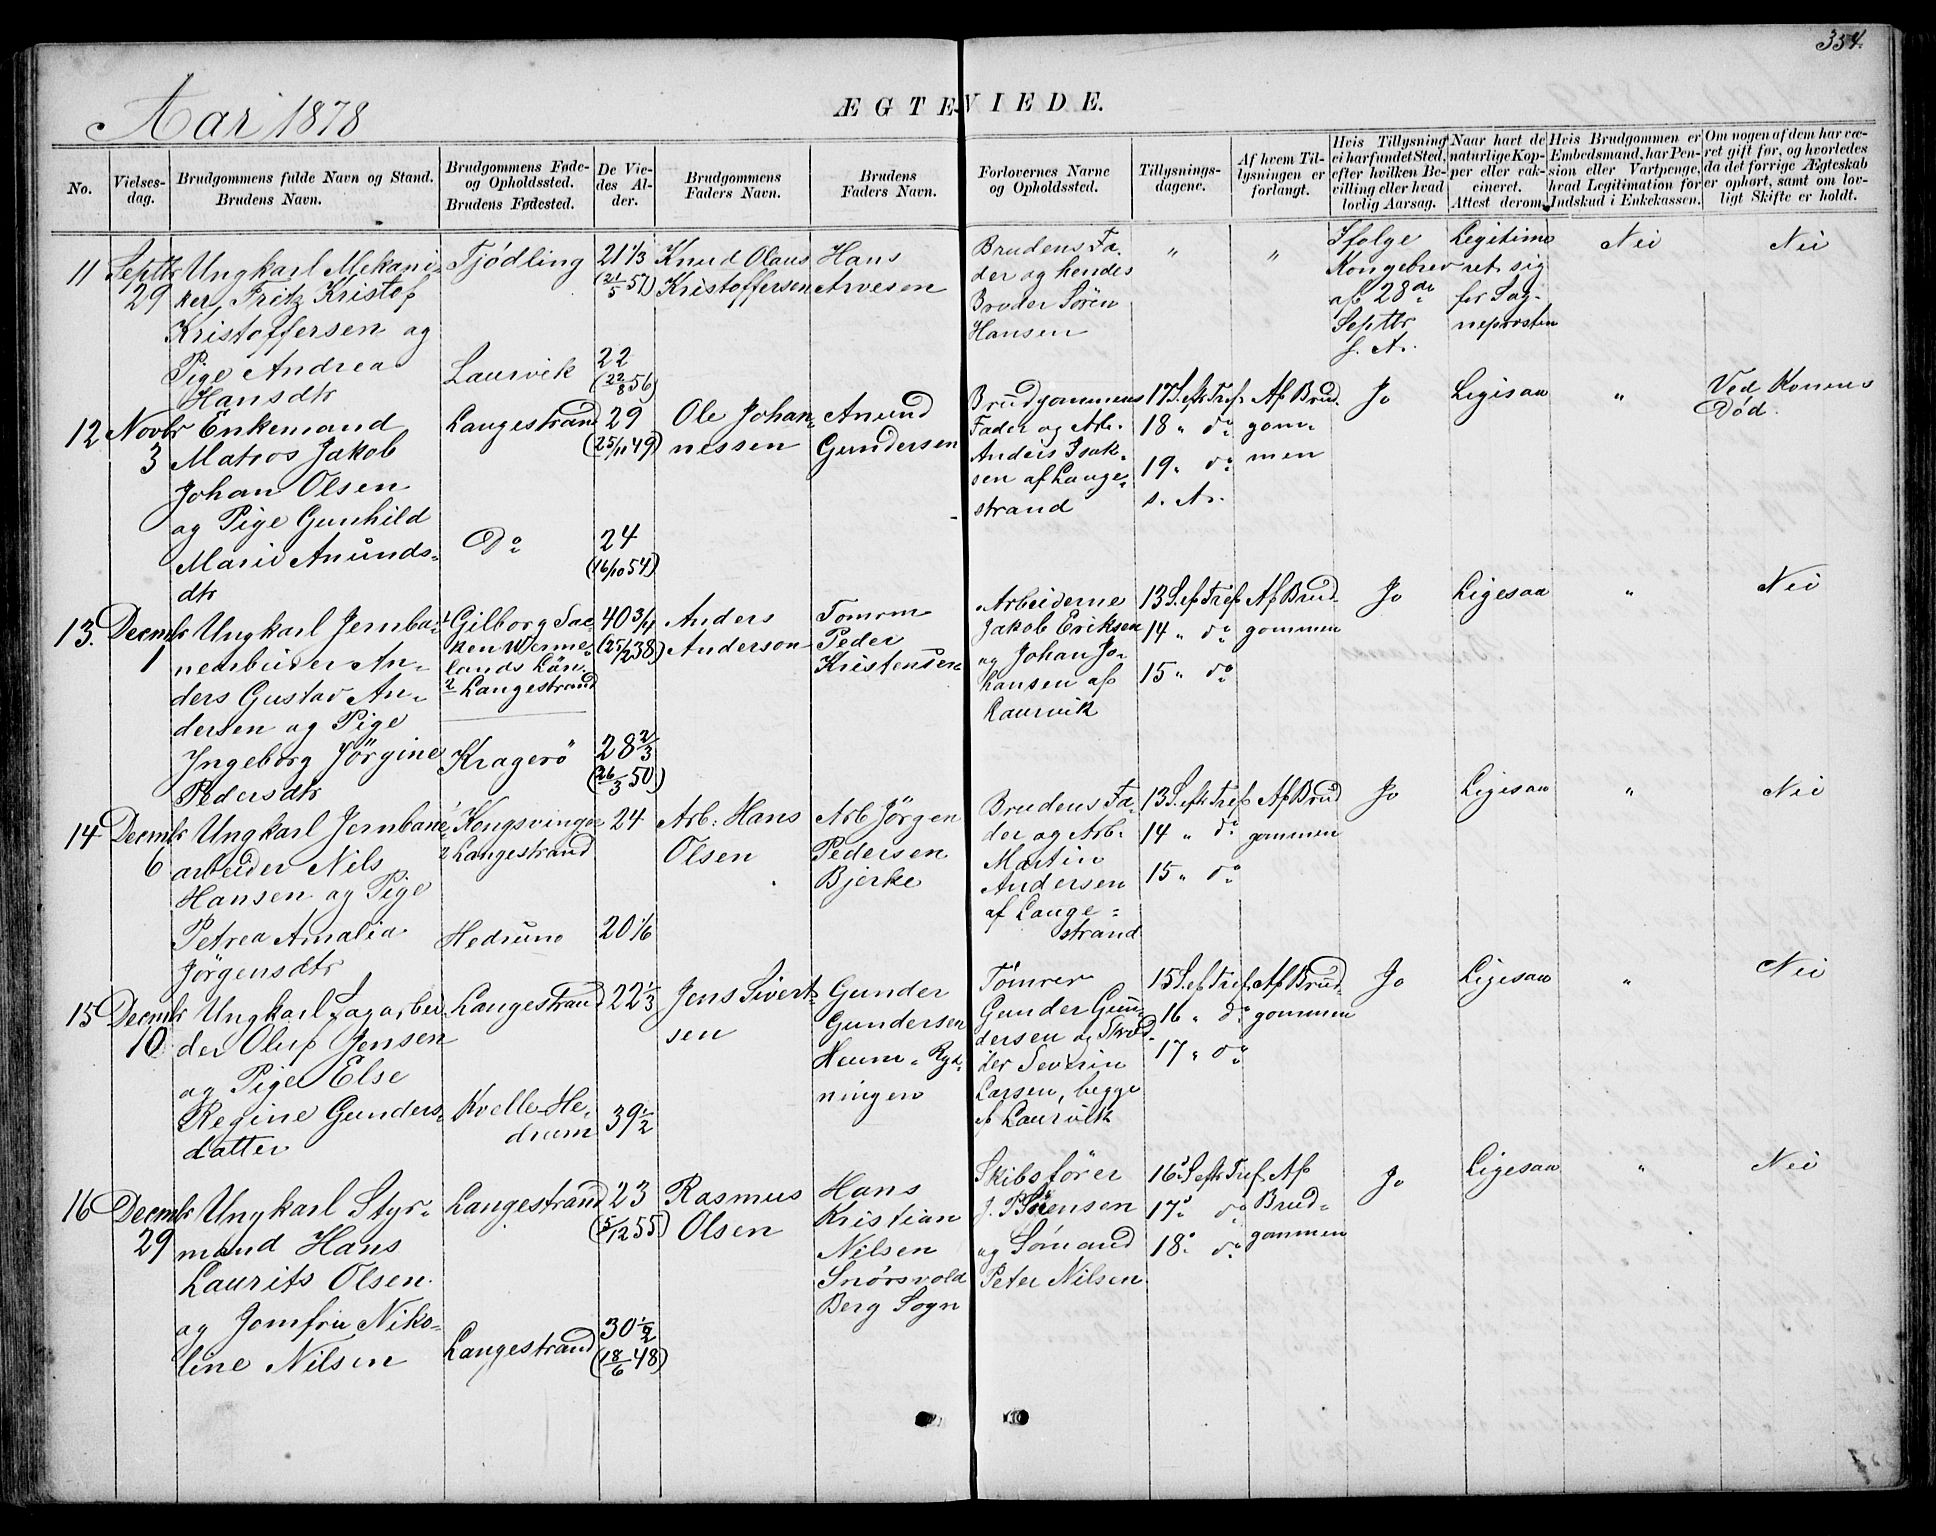 354.
Aar 1878
ÆGTEVIEDE.
No.
Vielses-
dag.
Brudgommens fulde Navn og Stand.
Brudens Navn.
Brudgommens Føde-
og Opholdssted.
Brudens Fødested.
De Vie-
des Al-
der.
Brudgommens
Faders Navn.
Brudens
Faders Navn.
Forlovernes Navne
og Opholdssted.
Tillysnings-
dagene.
Af hvem Til-
lysningen er
forlangt.
Hvis Tillysning
ei har fundet Sted,
efter hvilken Be-
villing eller hvad
lovlig Aarsag.
Naar havt de
naturlige Kop-
per eller vak-
cineret.
Attest derom.
Hvis Brudgommen er
Embedsmand, har Pen-
sion eller Vartpenge,
hvad Legitimation for
Indskud i Enkekassen.
Om nogen af dem har væ-
ret gift før, og hvorledes
da det forrige Ægteskab
er ophørt, samt om lov-
ligt Skifte er holdt.
11
Septbr
29
Ungkarl Mekani-
ker Fritz Kristof
Kristoffersen og
Pige Andrea
Hansdtr
Tjødling
Laurvik
21 1/3
(21/5 57)
22
(22/8 56)
Knud Olaus
Kristoffersen
Hans
Arvesen
Brudens Fa-
der og hendes
Broder Sören
Hansen
"
"
Ifølge
Kongebrev
af 28de
Septbr
s. A.
Legitime-
ret sig
for Sog-
nepresten
Nei
Nei
12
Novbr
3
Enkemand
Matros Jakob
Johan Olsen
og Pige Gunhild
Marie Anunds-
dtr
Langestrand
Do
29
(25/11 49)
24
(16/10 54)
Ole Johan-
nessen
Anund
Gundersen
Brudgommens
Fader og Arb.
Anders Isak-
sen af Lange-
strand
17 S. eft Tref.
18 " do
19 " do
s. A.
Af Brud-
gom-
men
Jo
Ligesaa
"
Ved Konens
Død.
13.
Decmbr
1
Ungkarl Jernba-
nearbeider An-
ders Gustav An-
dersen og Pige
Ingeborg Jörgine
Pedersdtr
1 Gilborg Soc-
ken Werme-
lands Län.
2 Langestrand
Kragerö
40 3/4
(25/12 38)
28 2/3
(26/3 50)
Anders
Anderson
Tomrm
Peder
Kristensen
Arbeiderne
Jakob Eriksen
og Johan Jo-
hansen af
Laurvik
13 S. ef Tref
14 " do
15 " do
Af Brud-
gommen
Jo
Ligesaa
"
Nei
14
Decmbr
6
Ungkarl Jernbane
arbeider Nils
Hansen og Pige
Petrea Amalia
Jörgensdtr
1 Kongsvinger
2 Langestrand
Hedrum
24
20 1/6
Arb: Hans
Olsen
Arb Jörgen
Pedersen
Bjerke
Brudens Fa-
der og Arb:
Martin
Andersen
af Lange-
strand
13 S. eft Tref
14 " do
15 " do
Af Brud
gommen
Jo
Ligesaa
"
Nei
15
Decmbr
10
Ungkarl Sagarbei-
der Oluf Jensen
og Pige Else
Regine Gunders-
datter
Langestrand
Kvelle-He-
drum
22 1/3
39 1/2
Jens Sivert-
sen
Gunder
Gundersen
Heum-Ryd-
ningen
Tömrer
Gunder Gun-
dersen og Skræd-
der Severin
Larsen, begge
af Laurvik
15 S. ef Tref
16 " do
17 " do
Af Brud-
gommen
Jo
Ligesaa
"
Nei
16
Decmbr
29
Ungkarl Styr-
mand Hans
Laurits Olsen
og Jomfru Niko-
line Nilsen
Langestrand
Langestrand
23
(5/12 55)
30 1/2
(18/6 48)
Rasmus
Olsen
Hans
Kristian
Nilsen
Snörsvold
Berg Sogn
Skibsförer
J. P. Sörensen
og Sömand
Peter Nilsen
16 S eftr Tref
17 do
18 do
Af
Brud-
gommen
Jo
Ligesaa
"
Nei